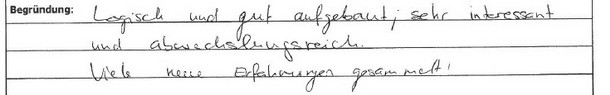 Begründung: Logisch und gut aufgebaut, sehr interessant
und abwechslungsreich.
Viele neue Erfahrungen gesammelt!